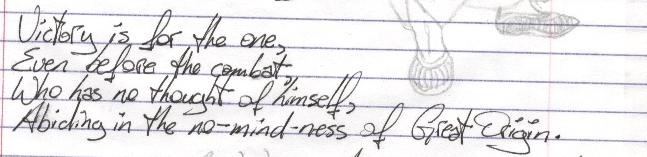 Victory is for the one,
Even before the combat,
Who has no thought of himself,
Abiding in the no-mind-ness of Great Origin.